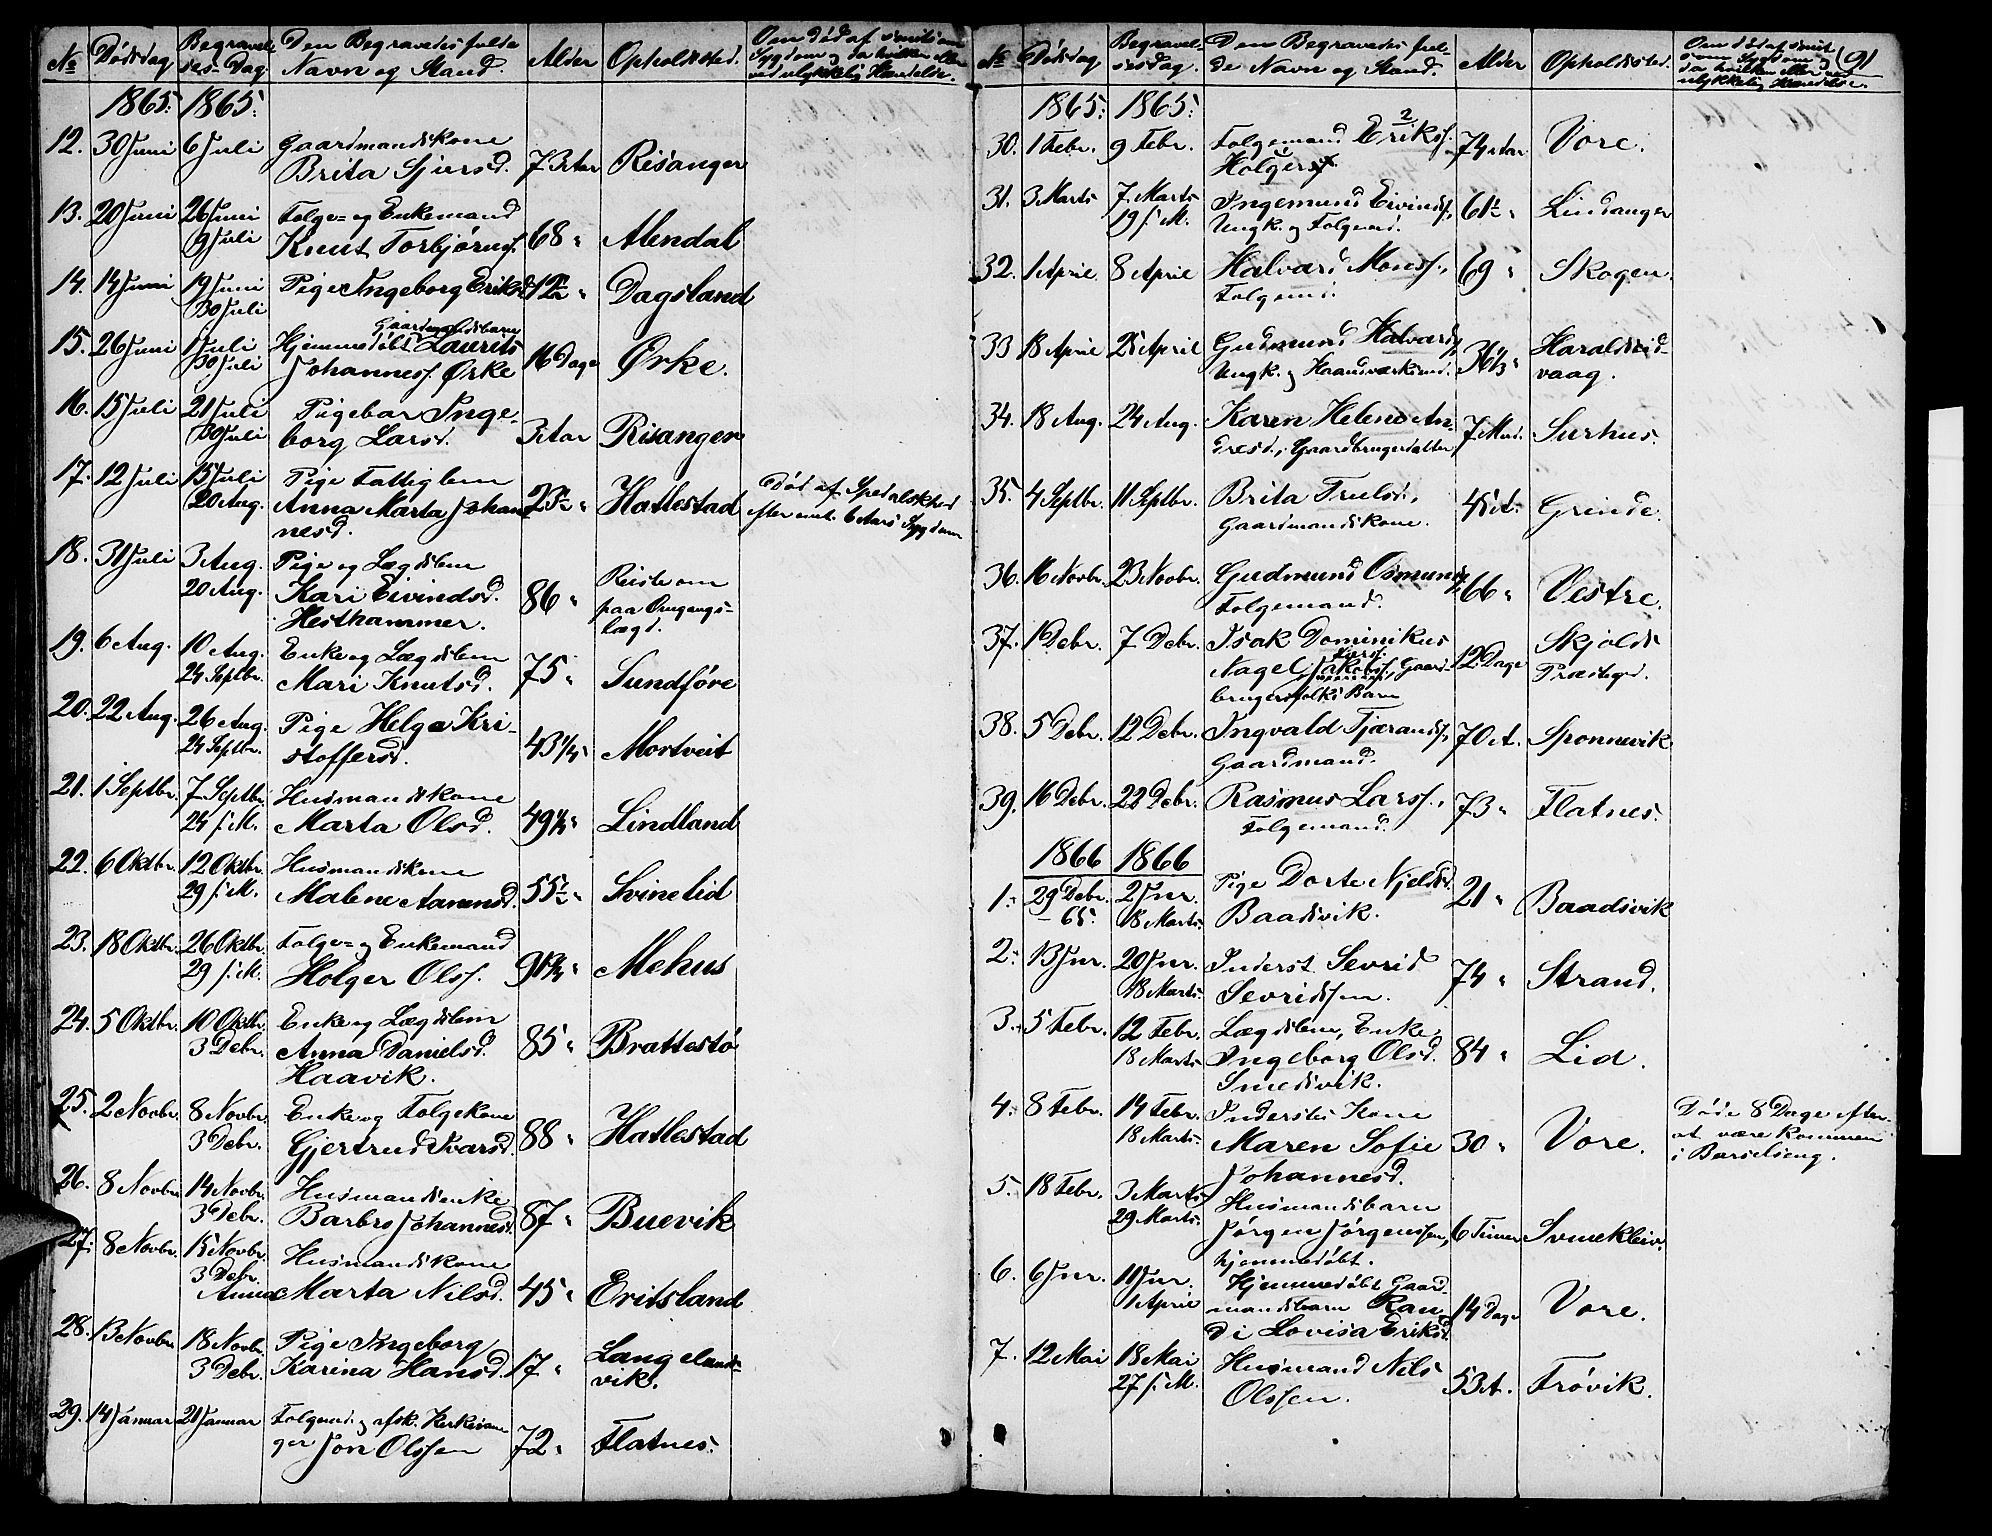 № Dödsdag Begravelses-Dag Den Begravedes fulde Navn og Stand. Alder Opholdssted. Om död af smitsom Sygdom og da hvilken eller ved ulykkelig Hændelse.
1865: 1865:
12. 30 Juni 6 Juli Gaardmandskone
Brita Sjursd. 73 Aar Risanger
13. 20 Juni 26 Juni Folge- og Enkemand
9 Juli Knut Torbjörns. 68 " Alendal
14. 14 Juni 19 Juni Pige Ingeborg Eriksd. 12 " Dagsland
30 Juli
15. 26 Juni 1 Juli Hjemmedöbt Gaardmandsbarn Laurits
30 Juli Johannes. Ørke 16 Dage Ørke.
16. 15 Juli 21 Juli Pigebar Inge-
30 Juli borg Larsd. 3 Aar Risanger
17. 12 Juli 15 Juli Pige Fattiglem
20 Aug. Anna Marta Johan-
nesd. 23 " Hattestad Död af Spedalskhed
efter omt. 6 Aars Sygdom
18. 31 Juli 3 Aug. Pige og Lægdslem
20 Aug. Kari Eivindsd.
Hesthammer. 86 " Reiste om
paa Omgangs-
lægd.
19. 6 Aug. 10 Aug. Enke og Lægdslem
24 Septbr. Mari Knutsd. 75 " Sundföre
20. 22 Aug. 26 Aug. Pige Helga Kri-
24 Septbr. stoffersd. 43 1/4 " Mortveit
21. 1 Septbr. 7 Septbr. Husmandskone
24 s. M. Marta Olsd. 49 " Lindland
22. 6 Oktbr. 12 Oktbr. Husmandskone
29 s. M. Malene Aamundsd. 55 " Svinelid
23. 18 Oktbr. 26 Oktbr. Folge- og Enkemand
29 s. M. Holger Olss. 91 " Mehus
24. 5 Oktbr. 10 Oktbr. Enke og Lægdslem
3 Debr. Anna Danielsd.
Haavik. 85 " Brattestö
25. 2 Novbr. 8 Novbr. Enke og Folgekone
3 Debr. Gjertrud Ivarsd. 88 " Hattestad
26. 8 Novbr. 14 Novbr. Husmandsenke
3 Debr. Barbro Johannesd. 87 " Buevik
27. 8 Novbr. 15 Novbr. Husmandskone
3 Debr.
Anna Marta Nilsd. 45 " Eritsland
28. 13 Novbr. 18 Novbr. Pige Ingeborg
3 Debr. Karina Hansd. 17 " Langelands-
vik.
29. 14 Januar 21 Januar Folgemd. og afsk. Kirkesan-
ger Jon Olssen 72 " Flatnes.
№ Dödsdag Begravelsesdag. Den Begravedes fulde Navn og Stand. Alder Opholdssted. Om död af smitsom Sygdom og da hvilken eller ved ulykkelig Hændelse. (91
1865: 1865:
30. 1 Febr. 9 Febr. Folgemand Eriks. 2
Holger 1 74 Aar Vore.
31. 3 Marts 7 Marts Ingemund Eivinds.,
19 s. M. Ungk. og Folgemd. 61 " Lindanger
32. 1 April 8 April Halvard Monss.,
Folgemd. 69 " Skogen.
33 18 April 25 April Gudmund Halvards.,
Ungk. og Haandværksmd. 36 1/3 " Haraldseid-
vaag.
34. 18 Aug. 24 Aug. Karen Helene An-
dresd., Gaardbrugerdatter 7 Mnd. Surhus.
35. 4 Septbr. 11 Septbr. Brita Trulsd.,
Gaardmandskone. 45 A. Grinde.
36. 16 Novbr. 23 Novbr. Gudmund Osmunds.,
Folgemand. 66 " Vestre.
37. 1 Debr. 7 Debr. Isak Dominikus
Nagel Jakobs., Gaard-
brugerfolks Barn 12 Dage Skjolds
Præstegd.
38. 5 Debr. 12 Debr. Ingvald Tjærands.,
Gaardmand. 70 A. Sponnevik
39. 16 Debr. 22 Debr. Rasmus Larss.,
Folgemand. 73 " Flatnes.
1866 1866
1. 29 Debr. 2 Jnr. Pige Dorte Njelsd.
65. 18 Marts Baadsvik. 21 " Baadsvik
2. 13 Jnr. 20 Jnr. Inderst Sevrid
18 Marts Sevridssen. 74 " Strand.
3. 5 Febr. 12 Febr. Lægdslem, Enke,
18 Marts Ingeborg Olsd. 84 " Lid.
Smedsvik.
4. 8 Febr. 14 Febr. Inderstes Kone
18 Marts Maren Sofie
Johannesd. 30 " Vore. Döde 8 Dage efter
at være kommen
i Barselseng.
5. 18 Febr. 3 Marts Husmandsbarn
29 Marts Jörgen Jörgenssen, 6 Timer Svinekleiv.
hjemmedöbt.
6. 6 Jnr. 11 Jnr. Hjemmedöbt Gaard-
1 April mandsbarn Ran-
di Lovisa Eriksd. 14 Dage Vore.
7. 12 Mai 18 Mai Husmand Nils
27 s. M. Olssen. 53 A. Trövik.